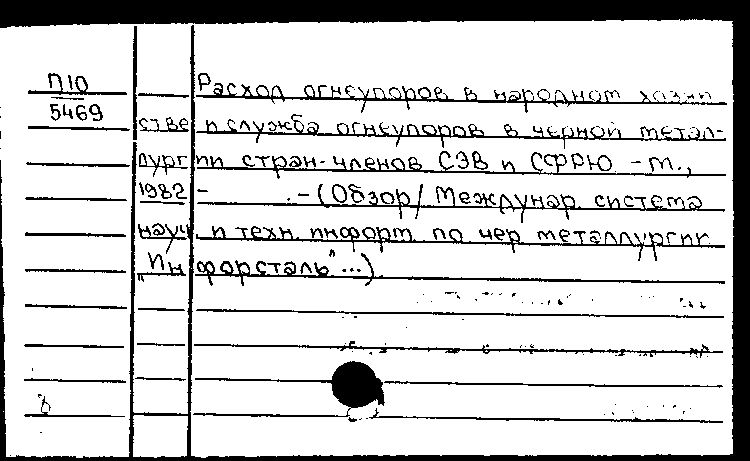 П10
5469
Расход огнеупоров в народном хозяй
стве и служба огнеупоров в черной метал-
лургии стран-членов СЭВ и СФРЮ - М.,
1982 - . - (Обзор / Междунар система
науч. и техн. информ. по чер металлургии
"Информсталь"...).
8